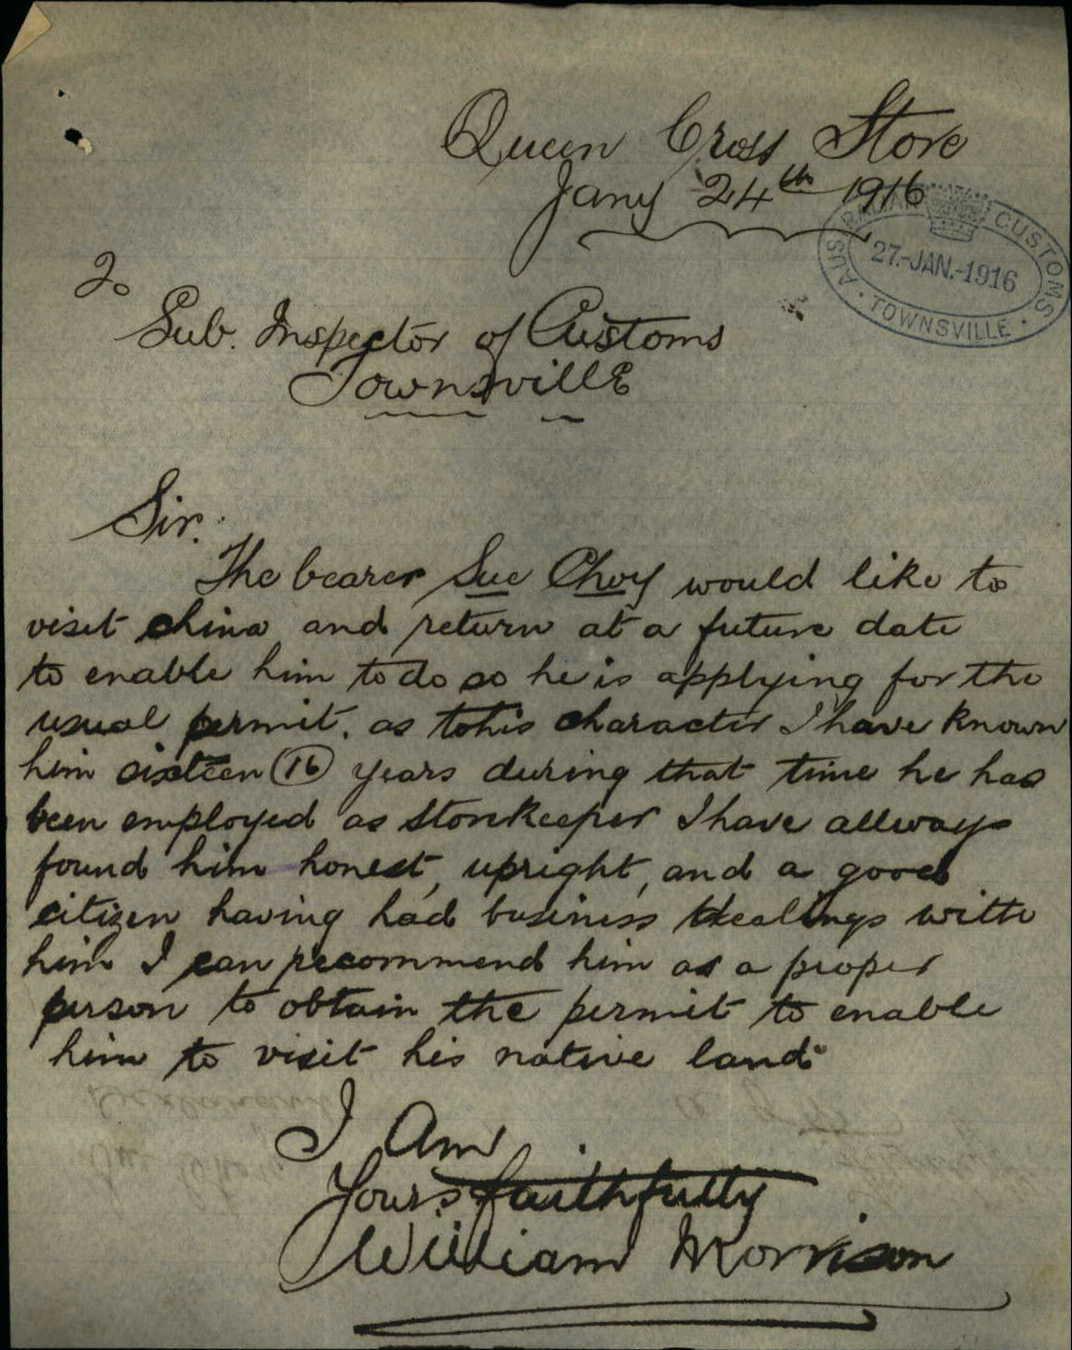 Queen Cross Store
Jany 24th 1916
AUSTRALIAN CUSTOMS
27.-JAN.-1916
· TOWNSVILLE ·
To
Sub. Inspector of Customs
Townsville
Sir.
The bearer Sue Choy would like to
visit china and return at a future date
to enable him to do so he is applying for the
usual permit. as to his character I have known
him sixteen (16) years during that time he has
been employed as storekeeper I have allways
found him honest, upright, and a good
citizen having had business dealings with
him I can recommend him as a proper
person to obtain the permit to enable
him to visit his native land
I Am
Yours faithfully
William Morrison